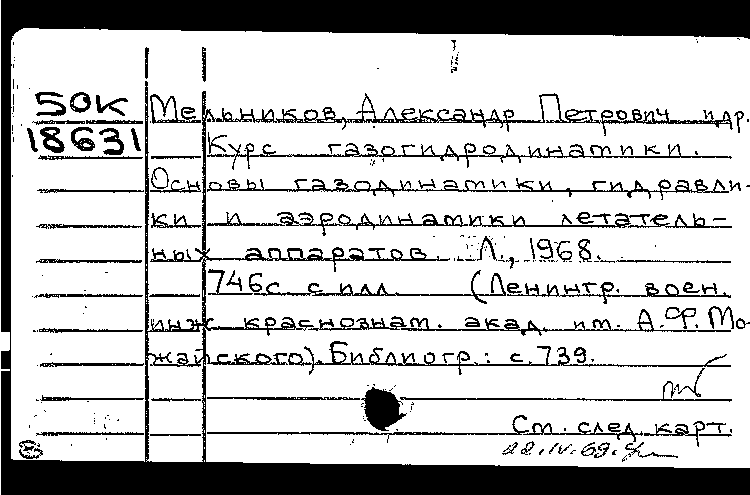 50К Мельников, Александр Петрович и др.
18631 Курс газогидродинамики.
Основы газодинамики, гидравли-
ки и аэродинамики летатель-
ных аппаратов. Л., 1968.
746с с илл. (Ленингр. воен.
инж. краснознам. акад. им. А.Ф. Мо-
жайского). Библиогр.: с. 739.
См. след. карт.
22.IV.69.